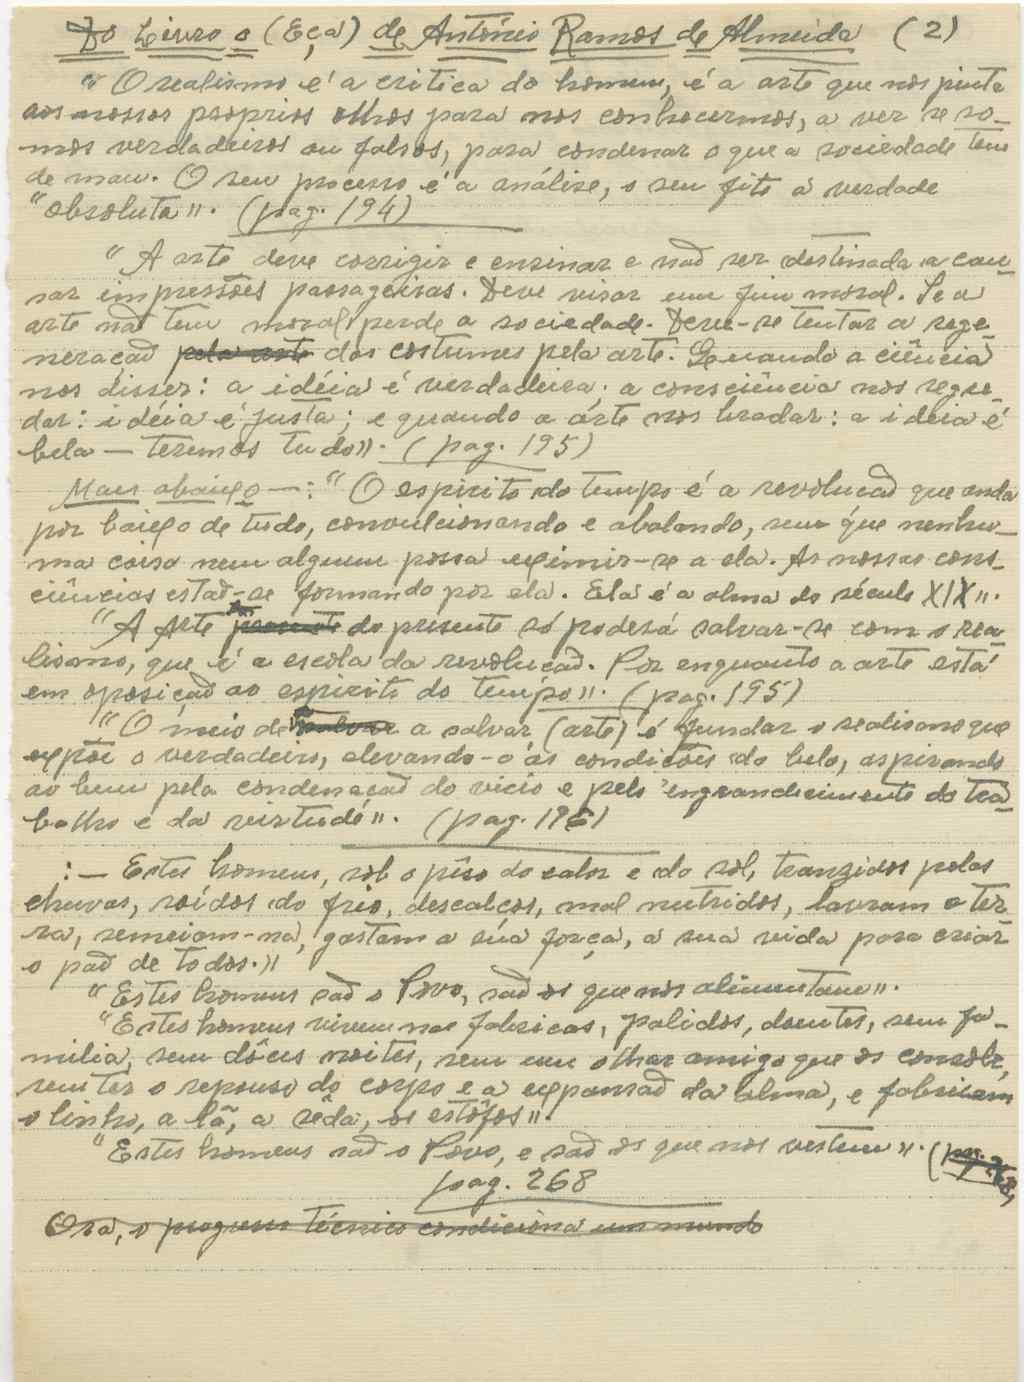 Do Livro o (Eça) de António Ramos de Almeida (2)
"O realismo é a critica do homem, é a arte que nos pinta
aos nossos proprios olhos para nos conhecermos, a ver se so-
mos verdadeiros ou falsos, para condenar o que a sociedade tem
de mau. O seu processo é a análise, o seu fito a verdade
"absoluta". (pag. 194)
"A arte deve corrigir e ensinar e não ser destinada a cau-
sar impressões passageiras. Deve visar um fim moral. Se a
arte não tem moral, perde a sociedade. Deve-se tentar a rege-
neração pela arte dos costumes pela arte. Quando a ciência
nos disser: a idéia é verdadeira; a consciência nos segre-
dar: idéia é justa; e quando a arte nos bradar: a ideia é
bela — teremos tudo". (pag. 195)
Mais abaixo —: "O espirito do tempo é a revolucão que anda
por baixo de tudo, convulcionando e abalando, sem que nenhu-
ma coisa nem alguem possa eximir-se a ela. As nossas cons-
ciências estão-se formando por ela. Ela é a alma do século XIX".
"A Arte presente do presente só poderá salvar-se com o rea-
lismo, que é a escola da revolucão. Por enquanto a arte está
em oposição ao espirito do tempo". (pag. 195)
"O meio de salvar a salvar (arte) é fundar o realismo que
expõe o verdadeiro, elevando-o ás condições do belo, aspirando
ao bem pela condenação do vicio e pelo engrandecimento do tra-
balho e da virtude". (pag. 196)
: — Estes homens, sob o pêso do calor e do sol, tranzidos pelas
chuvas, roídos do frio, descalços, mal nutridos, lavram a ter-
ra, semeiam-na, gastam a sua força, a sua vida para criar
o pão de todos."
"Estes homens são o Povo, são os que nos alimentam".
"Estes homens vivem nas fabricas, palidos, doentes, sem fa-
milia, sem dôces noites, sem um olhar amigo que os console,
sem ter o repouso do corpo e a expansão da alma, e fabricam
o linho, a lã, a sêda, os estôfos".
"Estes homens são o Povo, e são os que nos vestem". (pag. 268)
pag. 268
Ora, o progresso técnico condiciona um mundo